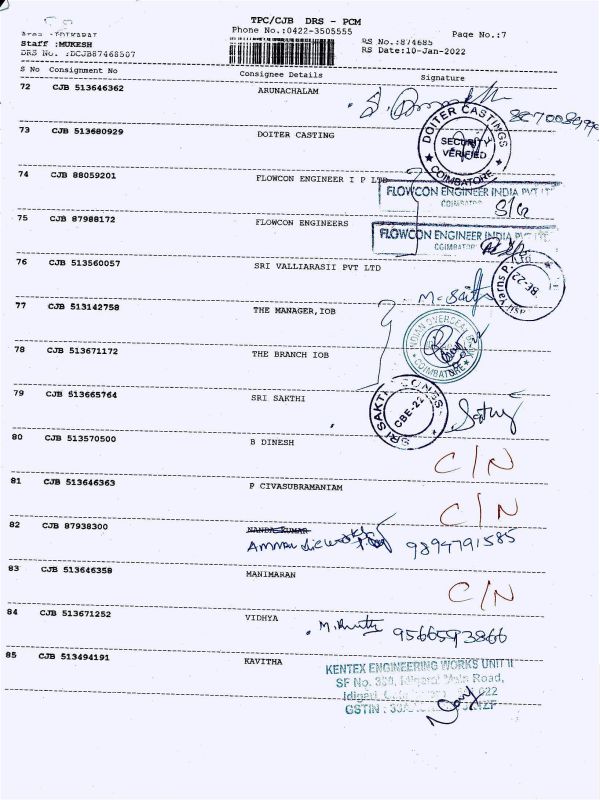 TPC/CJB DRS - PCM
Phone No.:0422-3505555
Page No.:7
Staff :MUKESH
RS No.:874685
DRS No. :DCJB87468507
RS Date:10-Jan-2022
S No Consignment No Consignee Details Signature
72 CJB 513646362 ARUNACHALAM
73 CJB 513680929 DOITER CASTING
DOITER CASTINGS
SECURITY
VERIFIED
COIMBATORE
74 CJB 88059201 FLOWCON ENGINEER I P LTD
FLOWCON ENGINEER INDIA PVT
75 CJB 87988172 FLOWCON ENGINEERS
FLOWCON ENGINEER INDIA PVT
COIMBATOR
76 CJB 513560057 SRI VALLIARASII PVT LTD
77 CJB 513142758 THE MANAGER,IOB
INDIAN OVERSEAS
COIMBATORE
78 CJB 513671172 THE BRANCH IOB
79 CJB 513665764 SRI SAKTHI
SRI SAKTHI
CBE-22
80 CJB 513570500 B DINESH C/N
81 CJB 513646363 P CIVASUBRAMANIAM C/N
82 CJB 87938300 NANDA KUMAR
9894791585
83 CJB 513646358 MANIMARAN C/N
84 CJB 513671252 VIDHYA 9566593866
85 CJB 513494191 KAVITHA
KENTEX ENGINEERING WORKS UNIT II
SF No. Idigarai Main Road,
GSTIN :